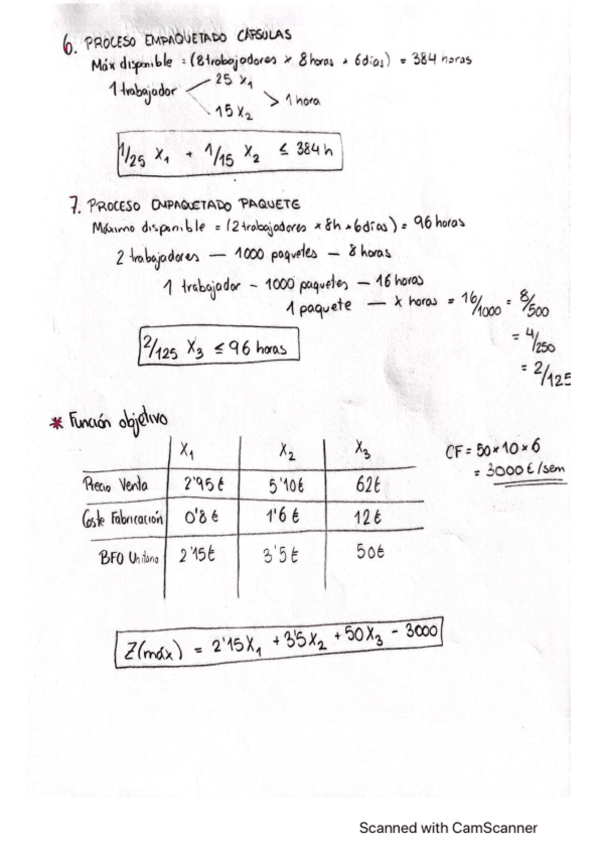 6. PROCESO EMPAQUETADO CÁPSULAS
Máx disponible = (8 trabajadores x 8 horas * 6 días) = 384 horas
1 trabajador
25 X1
15 X2
> 1 hora
1/25 X1 + 1/15 X2 ≤ 384 h
7. PROCESO EMPAQUETADO PAQUETE
Máximo disponible = (2 trabajadores x 8h * 6 días) = 96 horas
2 trabajadores — 1000 paquetes — 8 horas
1 trabajador - 1000 paquetes - 16 horas
1 paquete — x horas = 16/1000 = 8/500
= 4/250
= 2/125
2/125 X3 ≤ 96 horas
* Función objetivo
X1 X2 X3
Precio Venta 2'95€ 5'10€ 62€
Coste Fabricación 0'8€ 1'6€ 12€
BFO Unitario 2'15€ 3'5€ 50€
CF = 50*10*6
= 3000€/sem
Z(máx) = 2'15X1 + 3'5X2 + 50X3 - 3000
Scanned with CamScanner